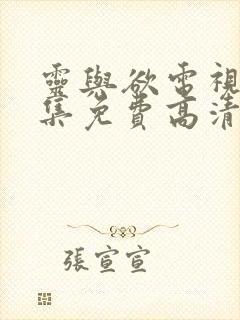 靈與欲電視
集免費高清
張宣宣